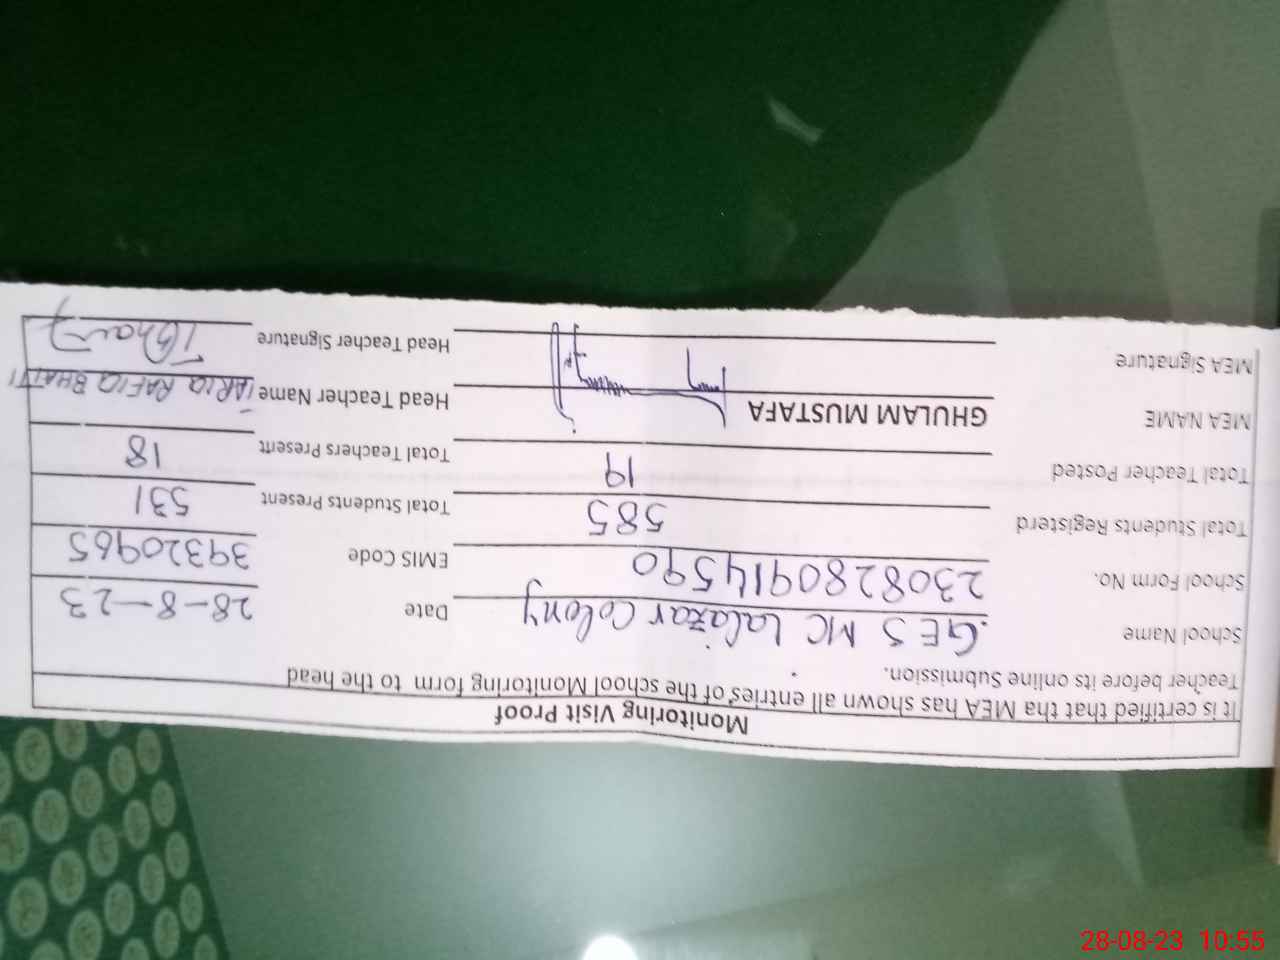 Monitoring Visit Proof
It is certified that tha MEA has shown all entries of the school Monitoring form to the head
Teacher before its online Submission.
School Name GES MC Lalazar Colony Date 28-8-23
School Form No. 2308280914590 EMIS Code 39320965
Total Students Registerd 585 Total Students Present 531
Total Teacher Posted 19 Total Teachers Present 18
MEA NAME GHULAM MUSTAFA Head Teacher Name TARIQ RAFIQ BHATTI
MEA Signature Head Teacher Signature
28-08-23 10:55